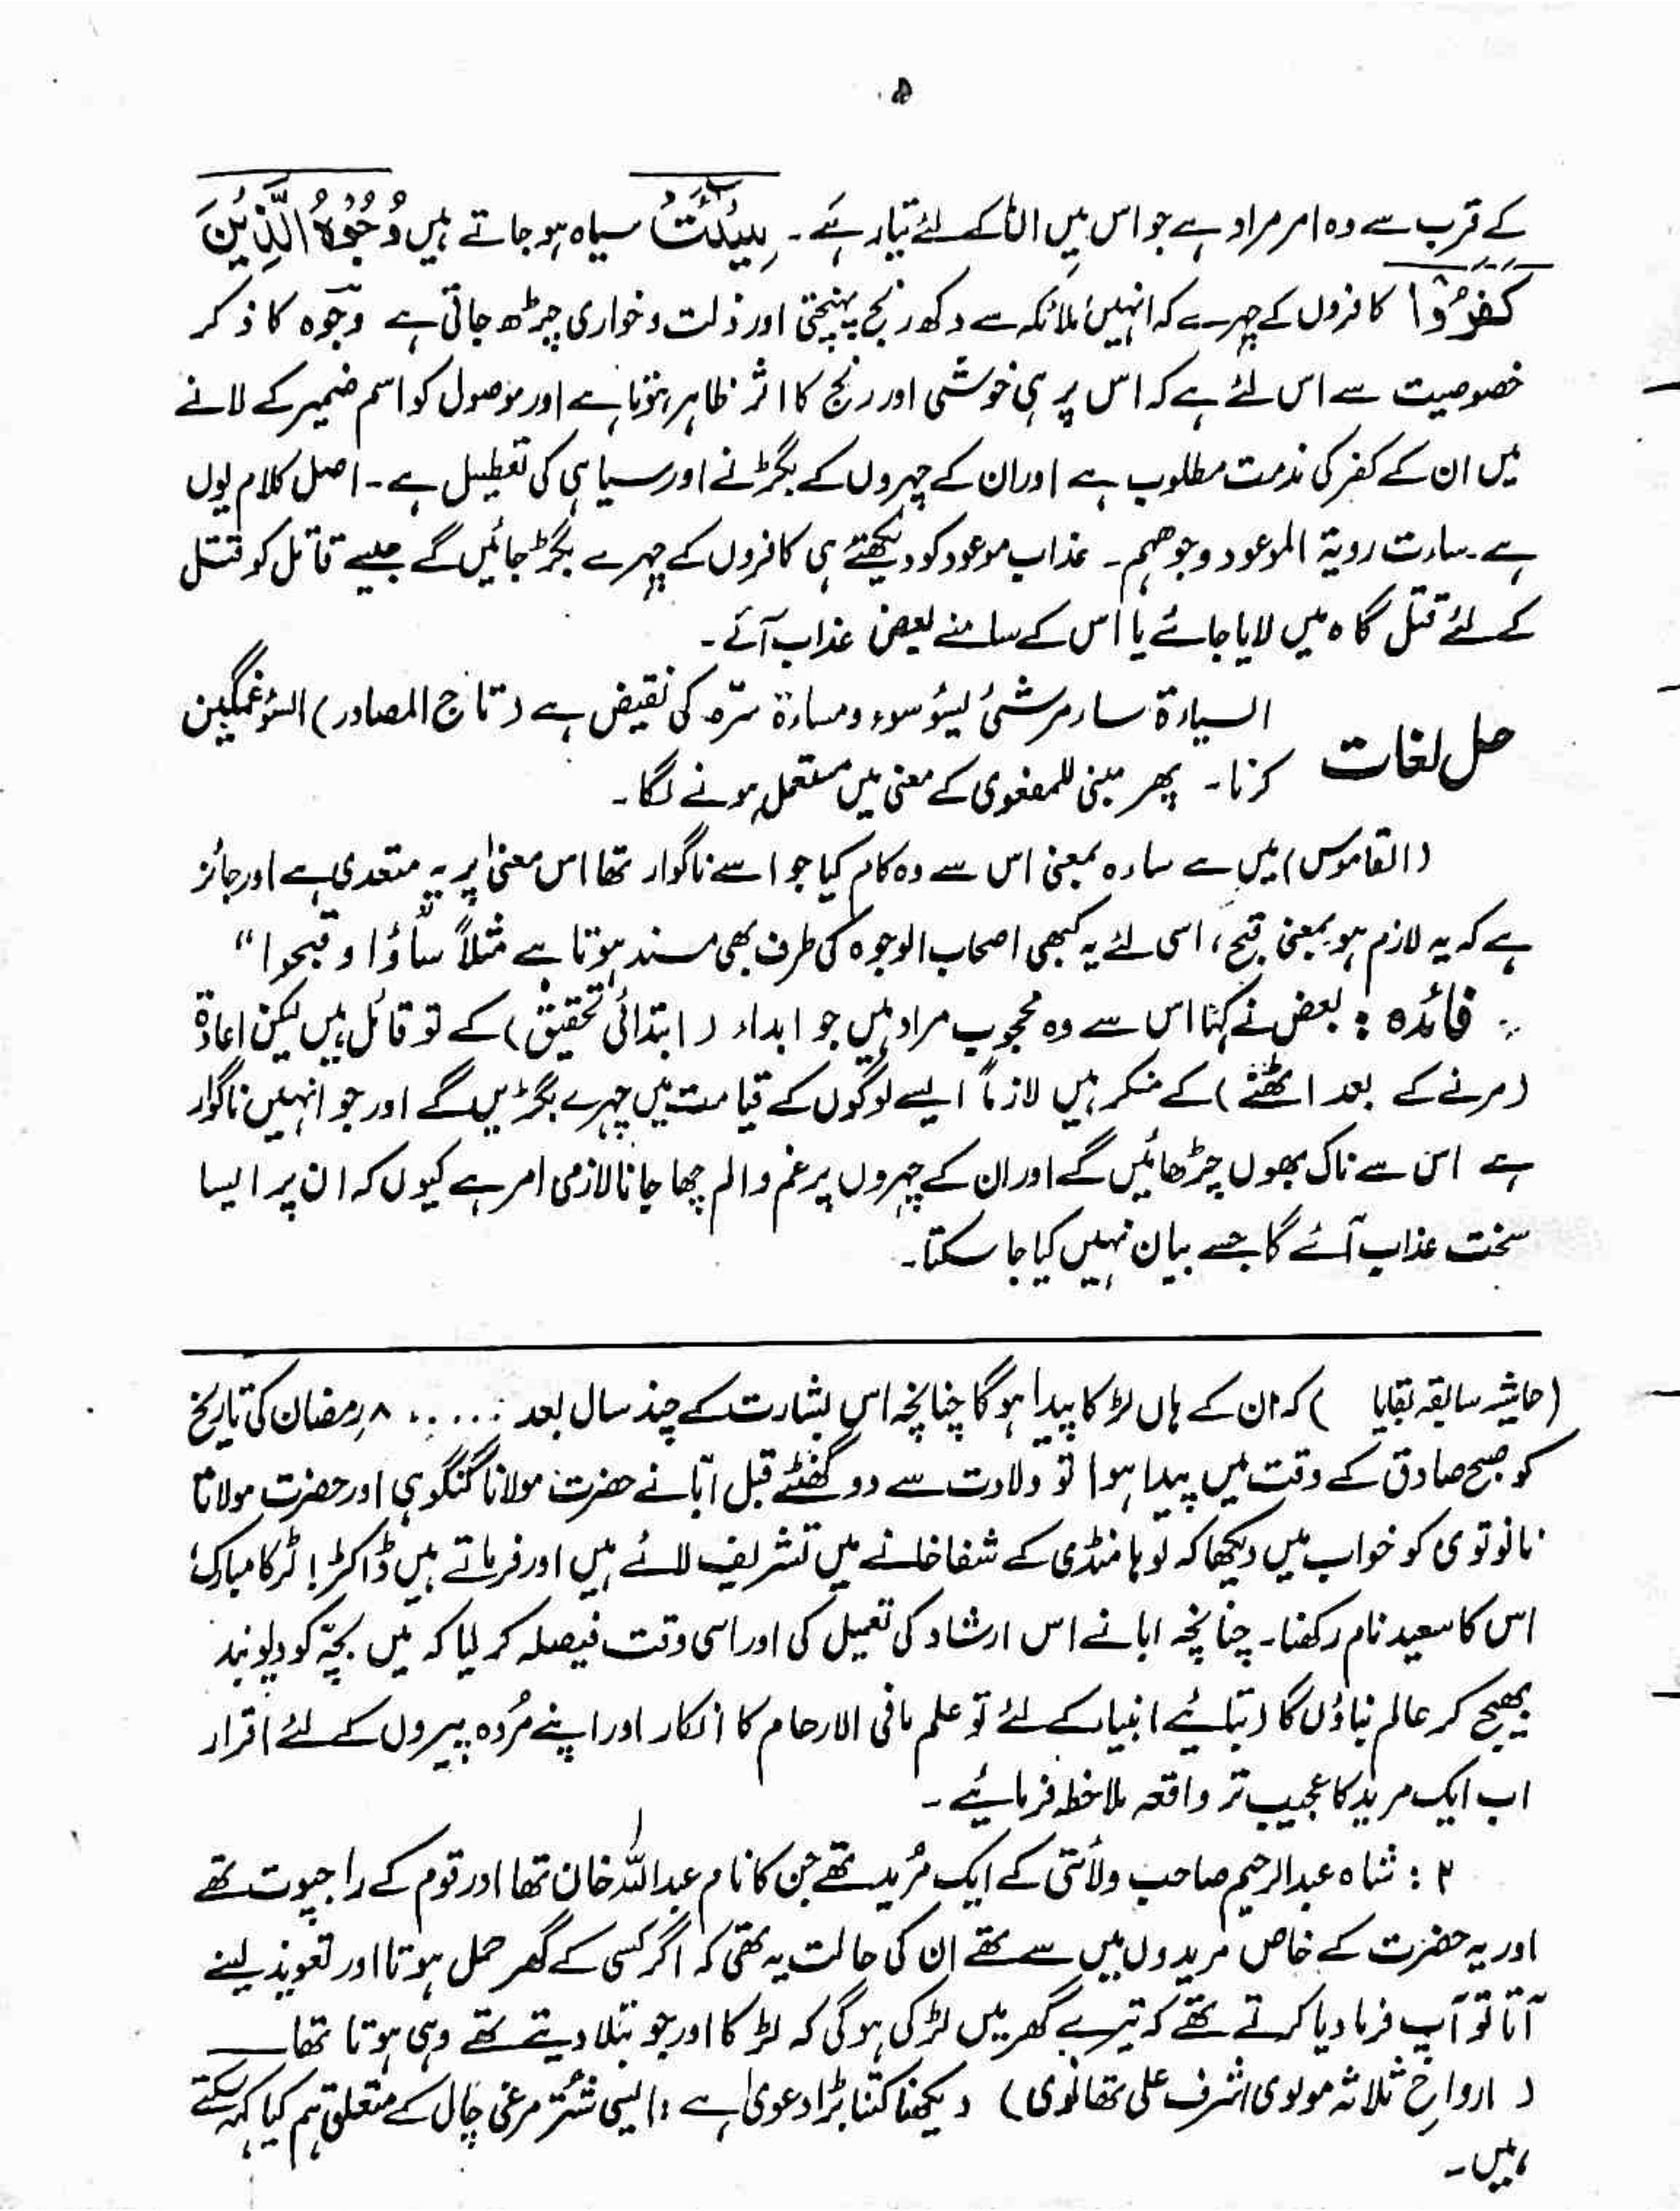 ۵
کے قرب سے وہ امر مراد ہے جو اس میں ان کے لئے تیار ہے۔ سِیْٓئَتْ سیاہ ہو جاتے ہیں وُجُوْہُ الَّذِیْنَ
کَفَرُوْا کافروں کے چہرے کہ انہیں ملائکہ سے دکھ رنج پہنچتی اور ذلت و خواری چڑھ جاتی ہے وجوہ کا ذکر
خصوصیت سے اس لئے ہے کہ اس پر ہی خوشی اور رنج کا اثر ظاہر ہوتا ہے اور موصول کو اسم ضمیر کے لانے
میں ان کے کفر کی مذمت مطلوب ہے اور ان کے چہروں کے بگڑنے اور سیاہی کی تعطیل ہے۔ اصل کلام یوں
ہے۔ سارت رویۃ الموعود وجوھہم۔ عذاب موعود کو دیکھتے ہی کافروں کے چہرے بگڑ جائیں گے جیسے قاتل کو قتل
کے لئے قتل گاہ میں لایا جائے یا اس کے سامنے بعض عذاب آئے۔
حل لغات السیارۃ سارمرشئ لیسُؤ سوء ومسارۃ سرّہ کی نقیض ہے (تاج المصادر) السُؤ غمگین
کرنا۔ پھر مبنی للمفعوی کے معنی میں مستعمل ہونے لگا۔
(القاموس) میں ہے سارہ بمعنی اس سے وہ کام کیا جو اسے ناگوار تھا اس معنیٰ پر یہ متعدی ہے اور جائز
ہے کہ یہ لازم ہو بمعنی قبح، اسی لئے یہ کبھی اصحاب الوجوہ کی طرف بھی مسند ہوتا ہے مثلاً ساؤا و قبحوا"
فائدہ : بعض نے کہا اس سے وہ محجوب مراد ہیں جو ابداء (ابتدائی تحقیق) کے تو قائل ہیں لیکن اعادۃ
(مرنے کے بعد اٹھنے) کے منکر ہیں لازماً ایسے لوگوں کے قیامت میں چہرے بگڑیں گے اور جو انہیں ناگوار
ہے اس سے ناک بھوں چڑھائیں گے اور ان کے چہروں پر غم و الم چھا جانا لازمی امر ہے کیوں کہ ان پر ایسا
سخت عذاب آئے گا جسے بیان نہیں کیا جا سکتا۔
(حاشیہ سابقہ بقایا ) کہ ان کے ہاں لڑکا پیدا ہو گا چنانچہ اس بشارت کے چند سال بعد ...... ۸ رمضان کی تاریخ
کو صبح صادق کے وقت میں پیدا ہوا تو ولادت سے دو گھنٹے قبل ابّا نے حضرت مولانا گنگوہی اور حضرت مولانا
نانوتوی کو خواب میں دیکھا کہ لوہا منڈی کے شفاخانے میں تشریف لائے ہیں اور فرماتے ہیں ڈاکٹر! لڑکا مبارک
اس کا سعید نام رکھنا۔ چنانچہ ابا نے اس ارشاد کی تعمیل کی اور اسی وقت فیصلہ کر لیا کہ میں بچّہ کو دیوبند
بھیج کر عالم بناؤں گا (بتائیے انبیاء کے لئے تو علم مافی الارحام کا انکار اور اپنے مُردہ پیروں کے لئے اقرار
اب ایک مرید کا عجیب تر واقعہ ملاحظہ فرمائیے۔
۲ : شاہ عبدالرحیم صاحب ولائتی کے ایک مُرید تھے جن کا نام عبداللہ خان تھا اور قوم کے راجپوت تھے
اور یہ حضرت کے خاص مریدوں میں سے تھے ان کی حالت یہ تھی کہ اگر کسی کے گھر حمل ہوتا اور تعویذ لینے
آتا تو آپ فرما دیا کرتے تھے کہ تیرے گھر میں لڑکی ہو گی کہ لڑکا اور جو بتلا دیتے تھے وہی ہوتا تھا
( ارواحِ ثلاثہ مولوی اشرف علی تھانوی) دیکھنا کتنا بڑا دعویٰ ہے ایسی شتر مرغی چال کے متعلق ہم کیا کہہ سکتے
ہیں۔